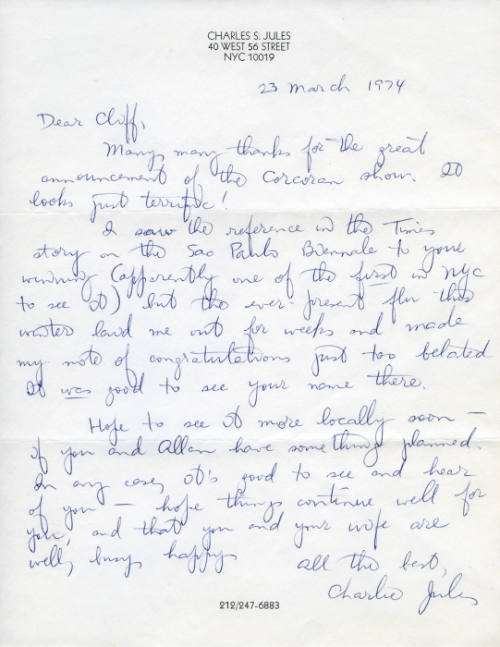 CHARLES S. JULES
40 WEST 56 STREET
NYC 10019
23 March 1974
Dear Cliff,
Many, many thanks for the great
announcement of the Corcoran show. It
looks just terrific!
I saw the reference in the Times
story on the Sao Paulo Biennale to your
winning (apparently one of the first in NYC
to see it) but the ever-present flu this
winter laid me out for weeks and made
my note of congratulations just too belated
It was good to see your name there.
Hope to see it more locally soon —
if you and Allan have something planned.
In any case, it's good to see and hear
of you — hope things continue well for
you, and that you and your wife are
well, busy happy
all the best,
Charlie Jules
212/247-6883